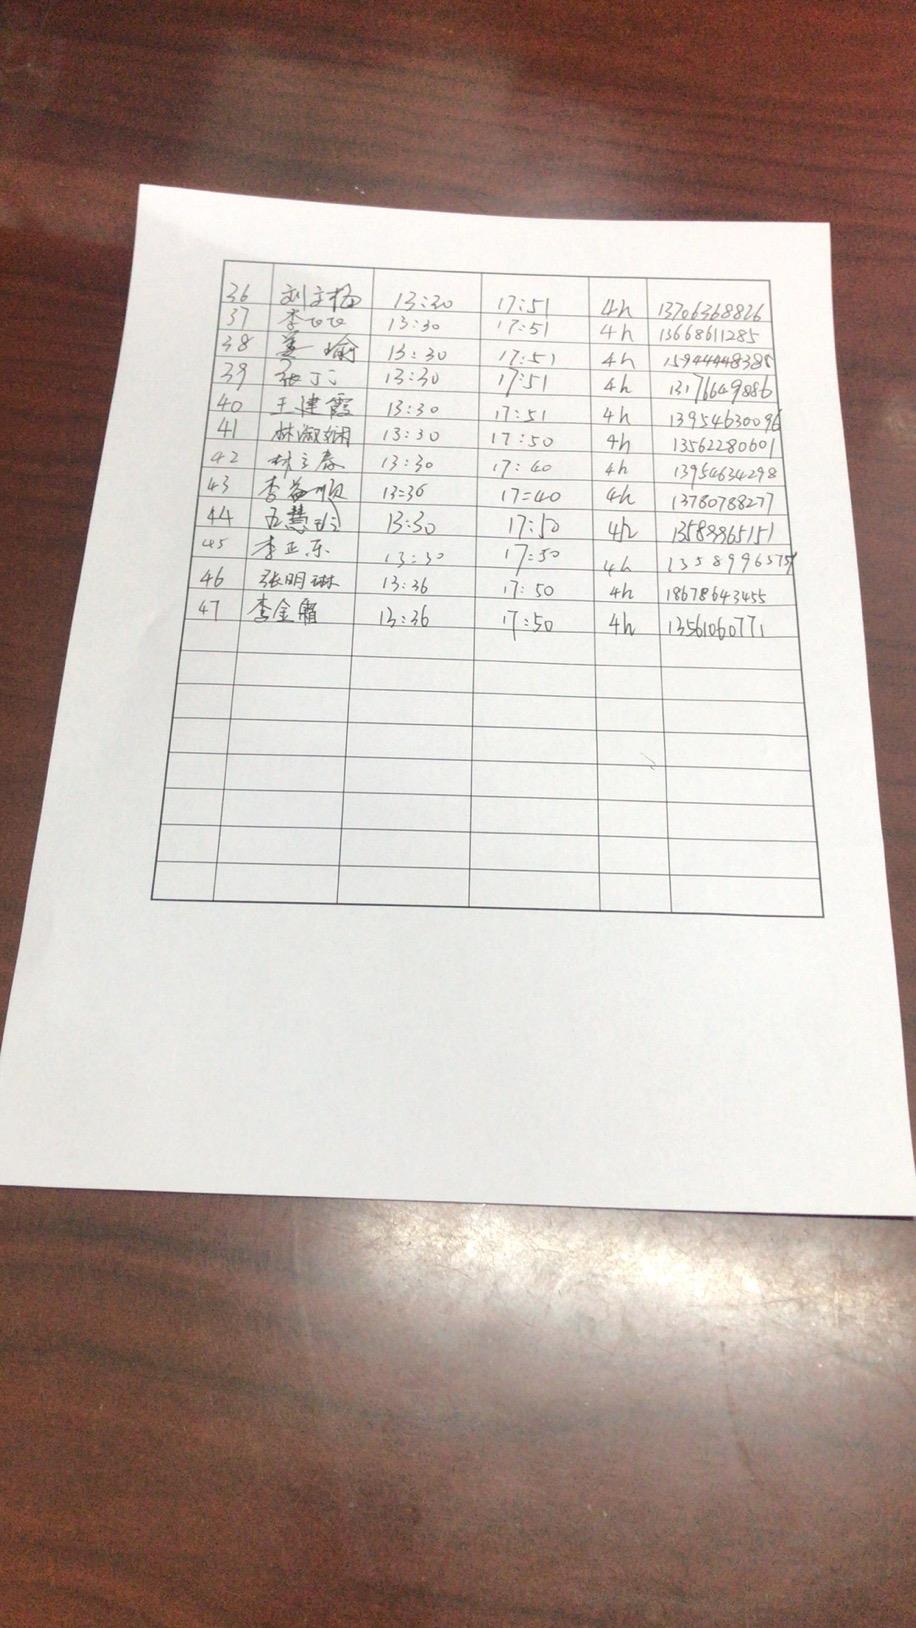 36 刘立梅 13:30 17:51 4h 13706368826
37 李 13:30 17:51 4h 13668611285
38 姜瑜 13:30 17:51 4h 15944448385
39 张丁丁 13:30 17:51 4h 13176649886
40 王建霞 13:30 17:51 4h 13954630096
41 林淑娴 13:30 17:50 4h 13562280601
42 林立春 13:30 17:40 4h 13954634298
43 李益顺 13=36 17=40 4h 13780788277
44 王慧玲 13:30 17:50 4h 13589965151
45 李正东 13:30 17:50 4h
46 张明琳 13:36 17:50 4h 18678643455
47 李金霜 13:36 17:50 4h 13561060771